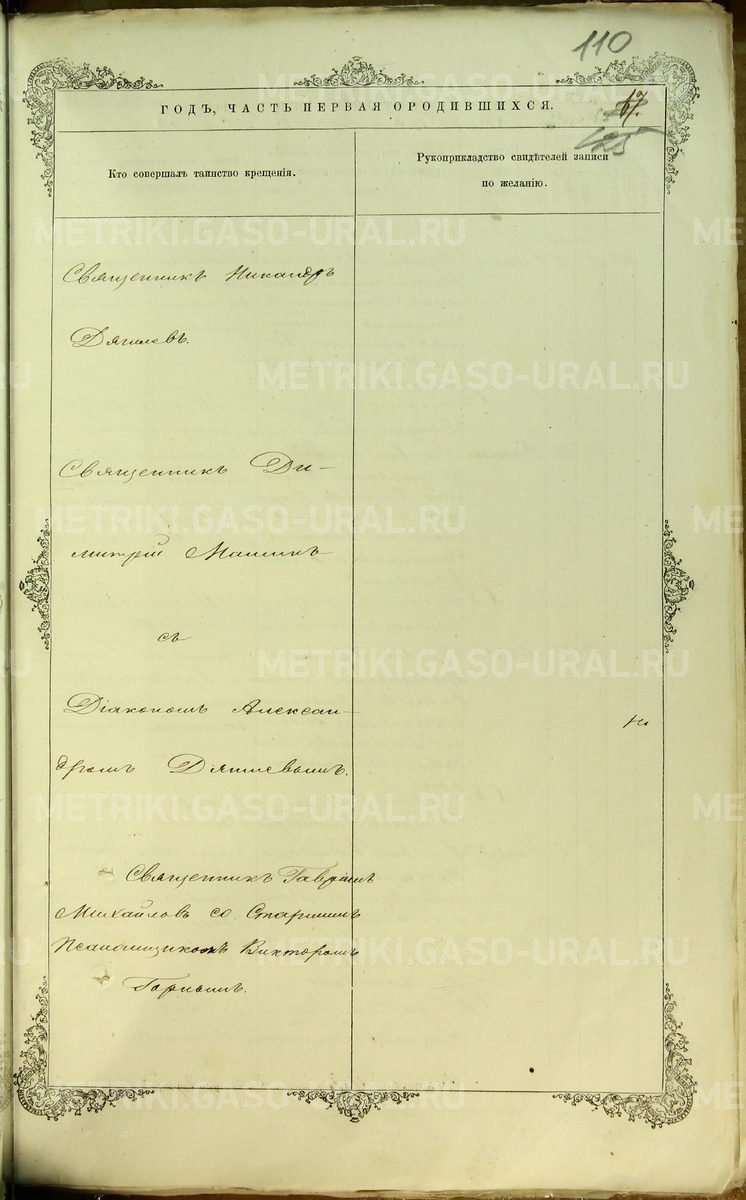 110
ГОДЪ, ЧАСТЬ ПЕРВАЯ О РОДИВШИХСЯ.
67.
Кто совершалъ таинство крещенія.
Рукоприкладство свидѣтелей записи
по желанію.
Священникъ Никандръ
Дягилевъ.
Священникъ Ди-
митрій
съ
Діакономъ Алексан-
дромъ Дягилевымъ.
Священникъ Гавріилъ
Михайловъ со Старшимъ
Псаломщикомъ Викторомъ
Горнымъ.
METRIKI.GASO-URAL.RU